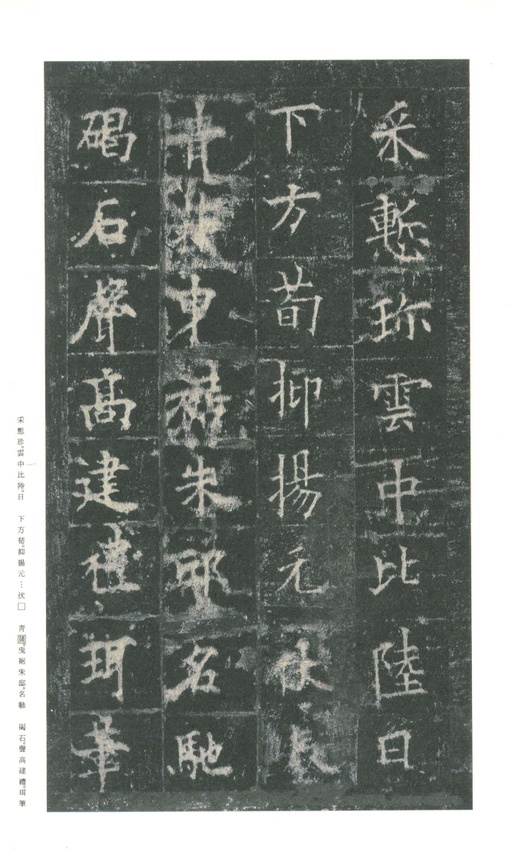 采慙珎雲中比陸日
下方荀抑揚元伏
青曳裾朱邸名馳
碣石聲高建禮珥筆
采慙珍。雲中比陸。日　下方荀。抑揚元…伏□　青。曳裾朱邸。名馳　碣石。聲高建禮。珥筆